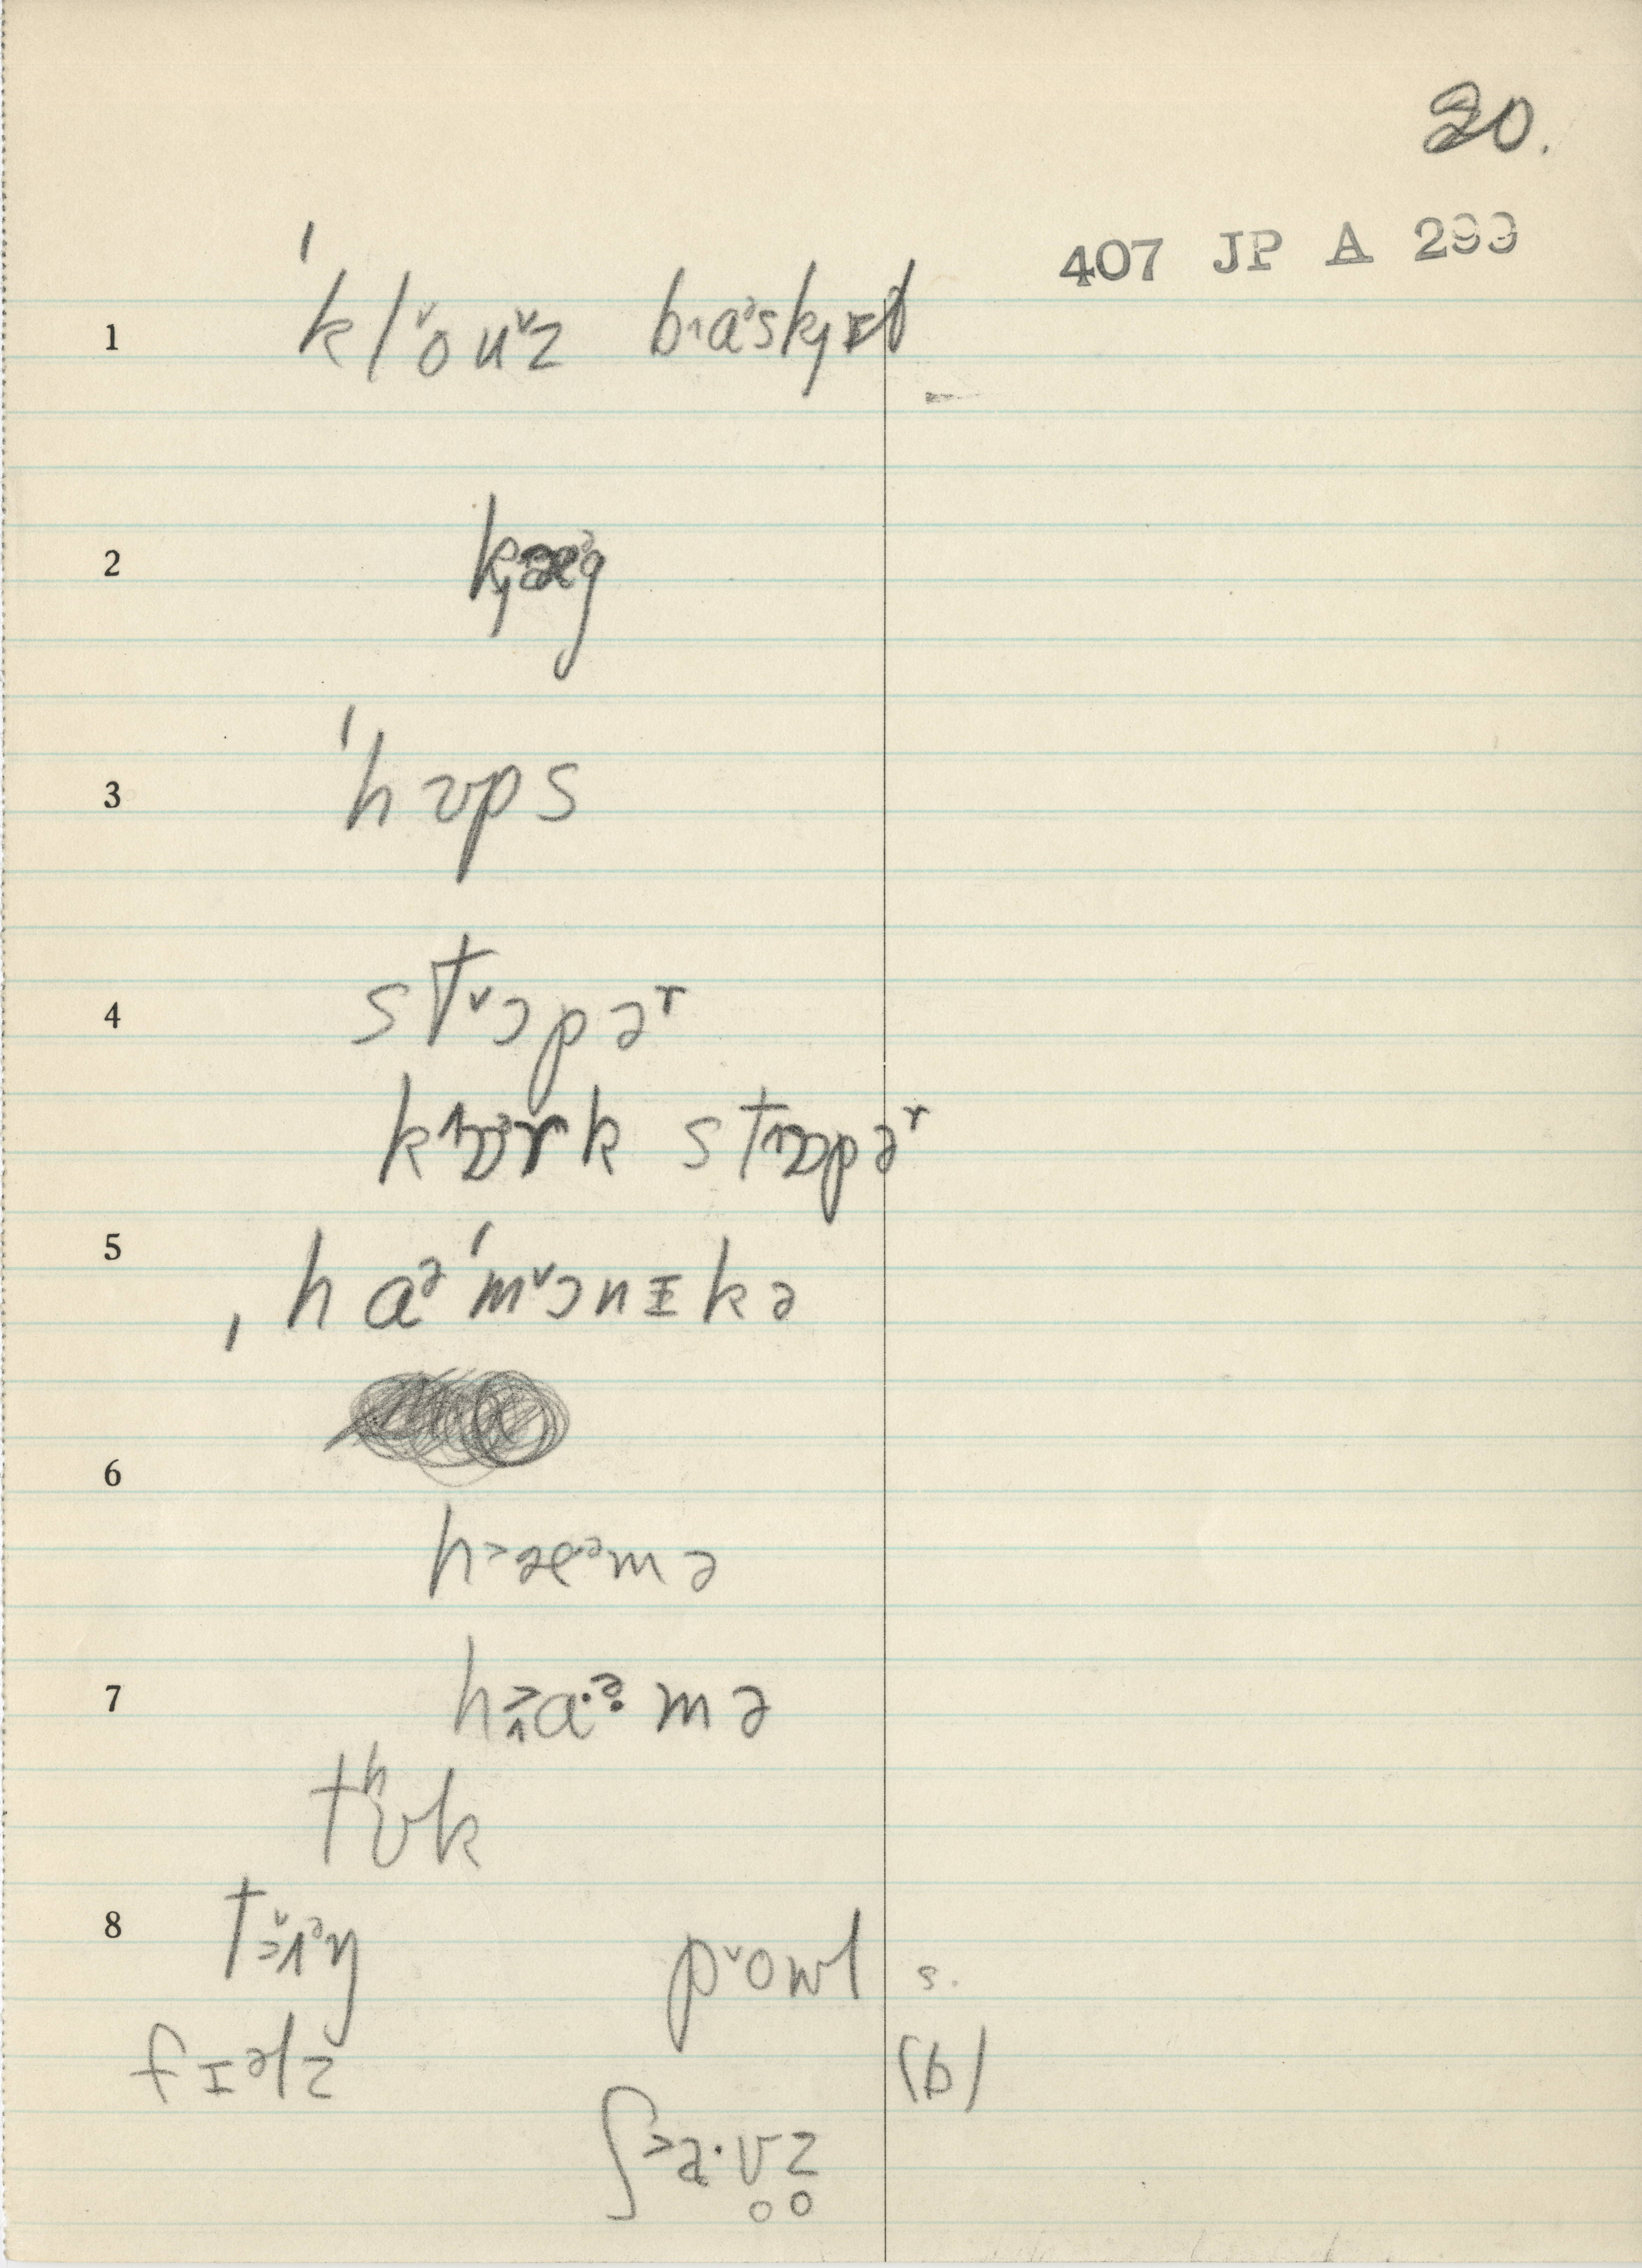 20.
407 JP A 299
1 ˈklo˅u˅z ba˄ᵊskɟɪt
2 kɟæᵊg
3 ˈhʊps
4 st˅ɔpəʳ
kɒ˄ᵊrk stɒ˄pəʳ
5 ˌhaᵊˈm˅ɔnɪkə
6
h˃æᵊmə
7 h˃a·ᵊmə
tʰʊk
8 tʌ˅ᵊŋ p˅owl s.
fɪəlz (b)
ʃ˃a·ʊ̥z̥